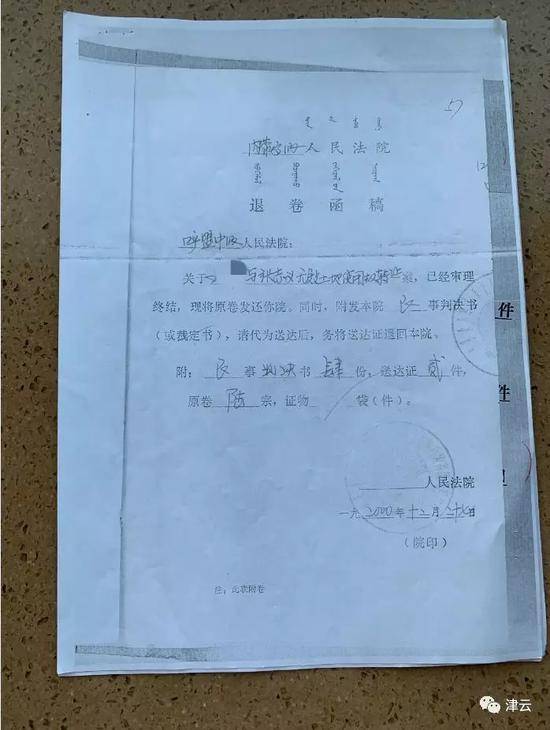 57
内蒙古 人民法院
退卷函稿
呼盟中级人民法院:
关于 土地使用权转让案,已经审理
终结,现将原卷发还你院。同时,附发本院 民 事判决书
(或裁定书),请代为送达后,务将送达证退回本院。
附: 民 事 判决 书 肆 份;送达证 贰 件,
原卷 陆 宗,证物 袋(件)。
人民法院
一九 2000年十二月 日
(院印)
注:此联附卷
件
件
津云